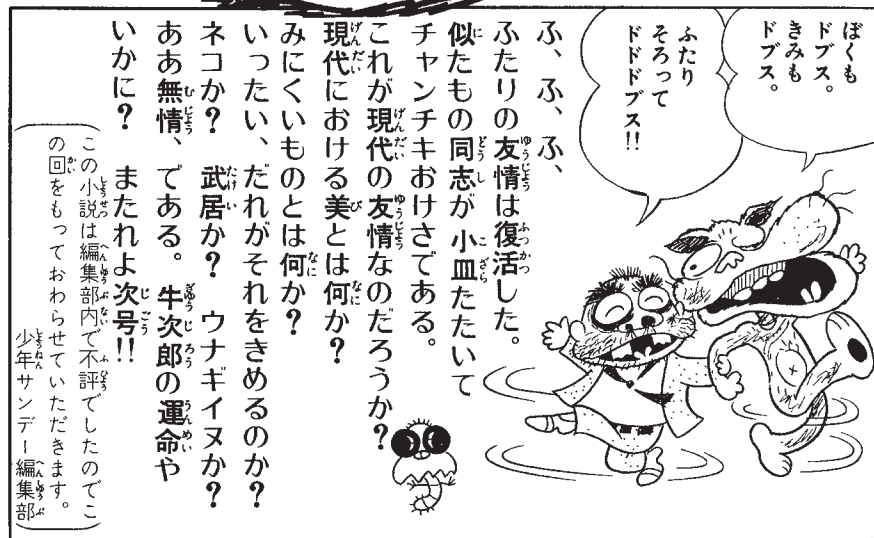 ぼくも
ドブス。
きみも
ドブス。
ふたり
そろって
ドドドブス!!
ふ、ふ、ふ、
ふたりの友情は復活した。
似たもの同志が小皿たたいて
チャンチキおけさである。
これが現代の友情なのだろうか?
現代における美とは何か?
みにくいものとは何か?
いったい、だれがそれをきめるのか?
ネコか? 武居か? ウナギイヌか?
ああ無情、である。牛次郎の運命や
いかに? またれよ次号!!
この小説は編集部内で不評でしたのでこ
の回をもっておわらせていただきます。
少年サンデー編集部